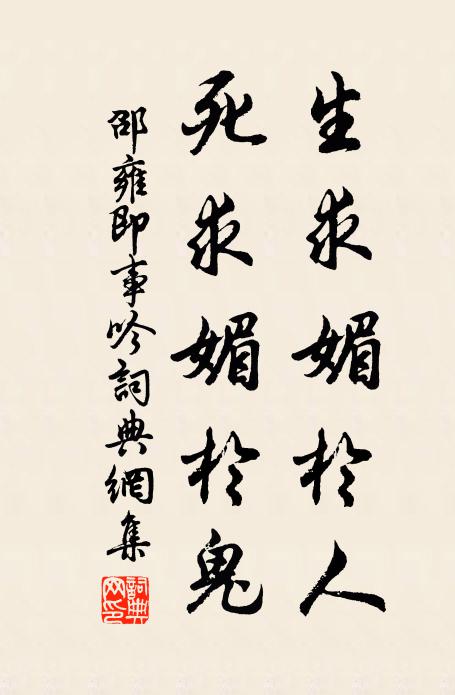 生求媚於人
死求媚於鬼
邵雍即事吟詞典網集
詞典网印